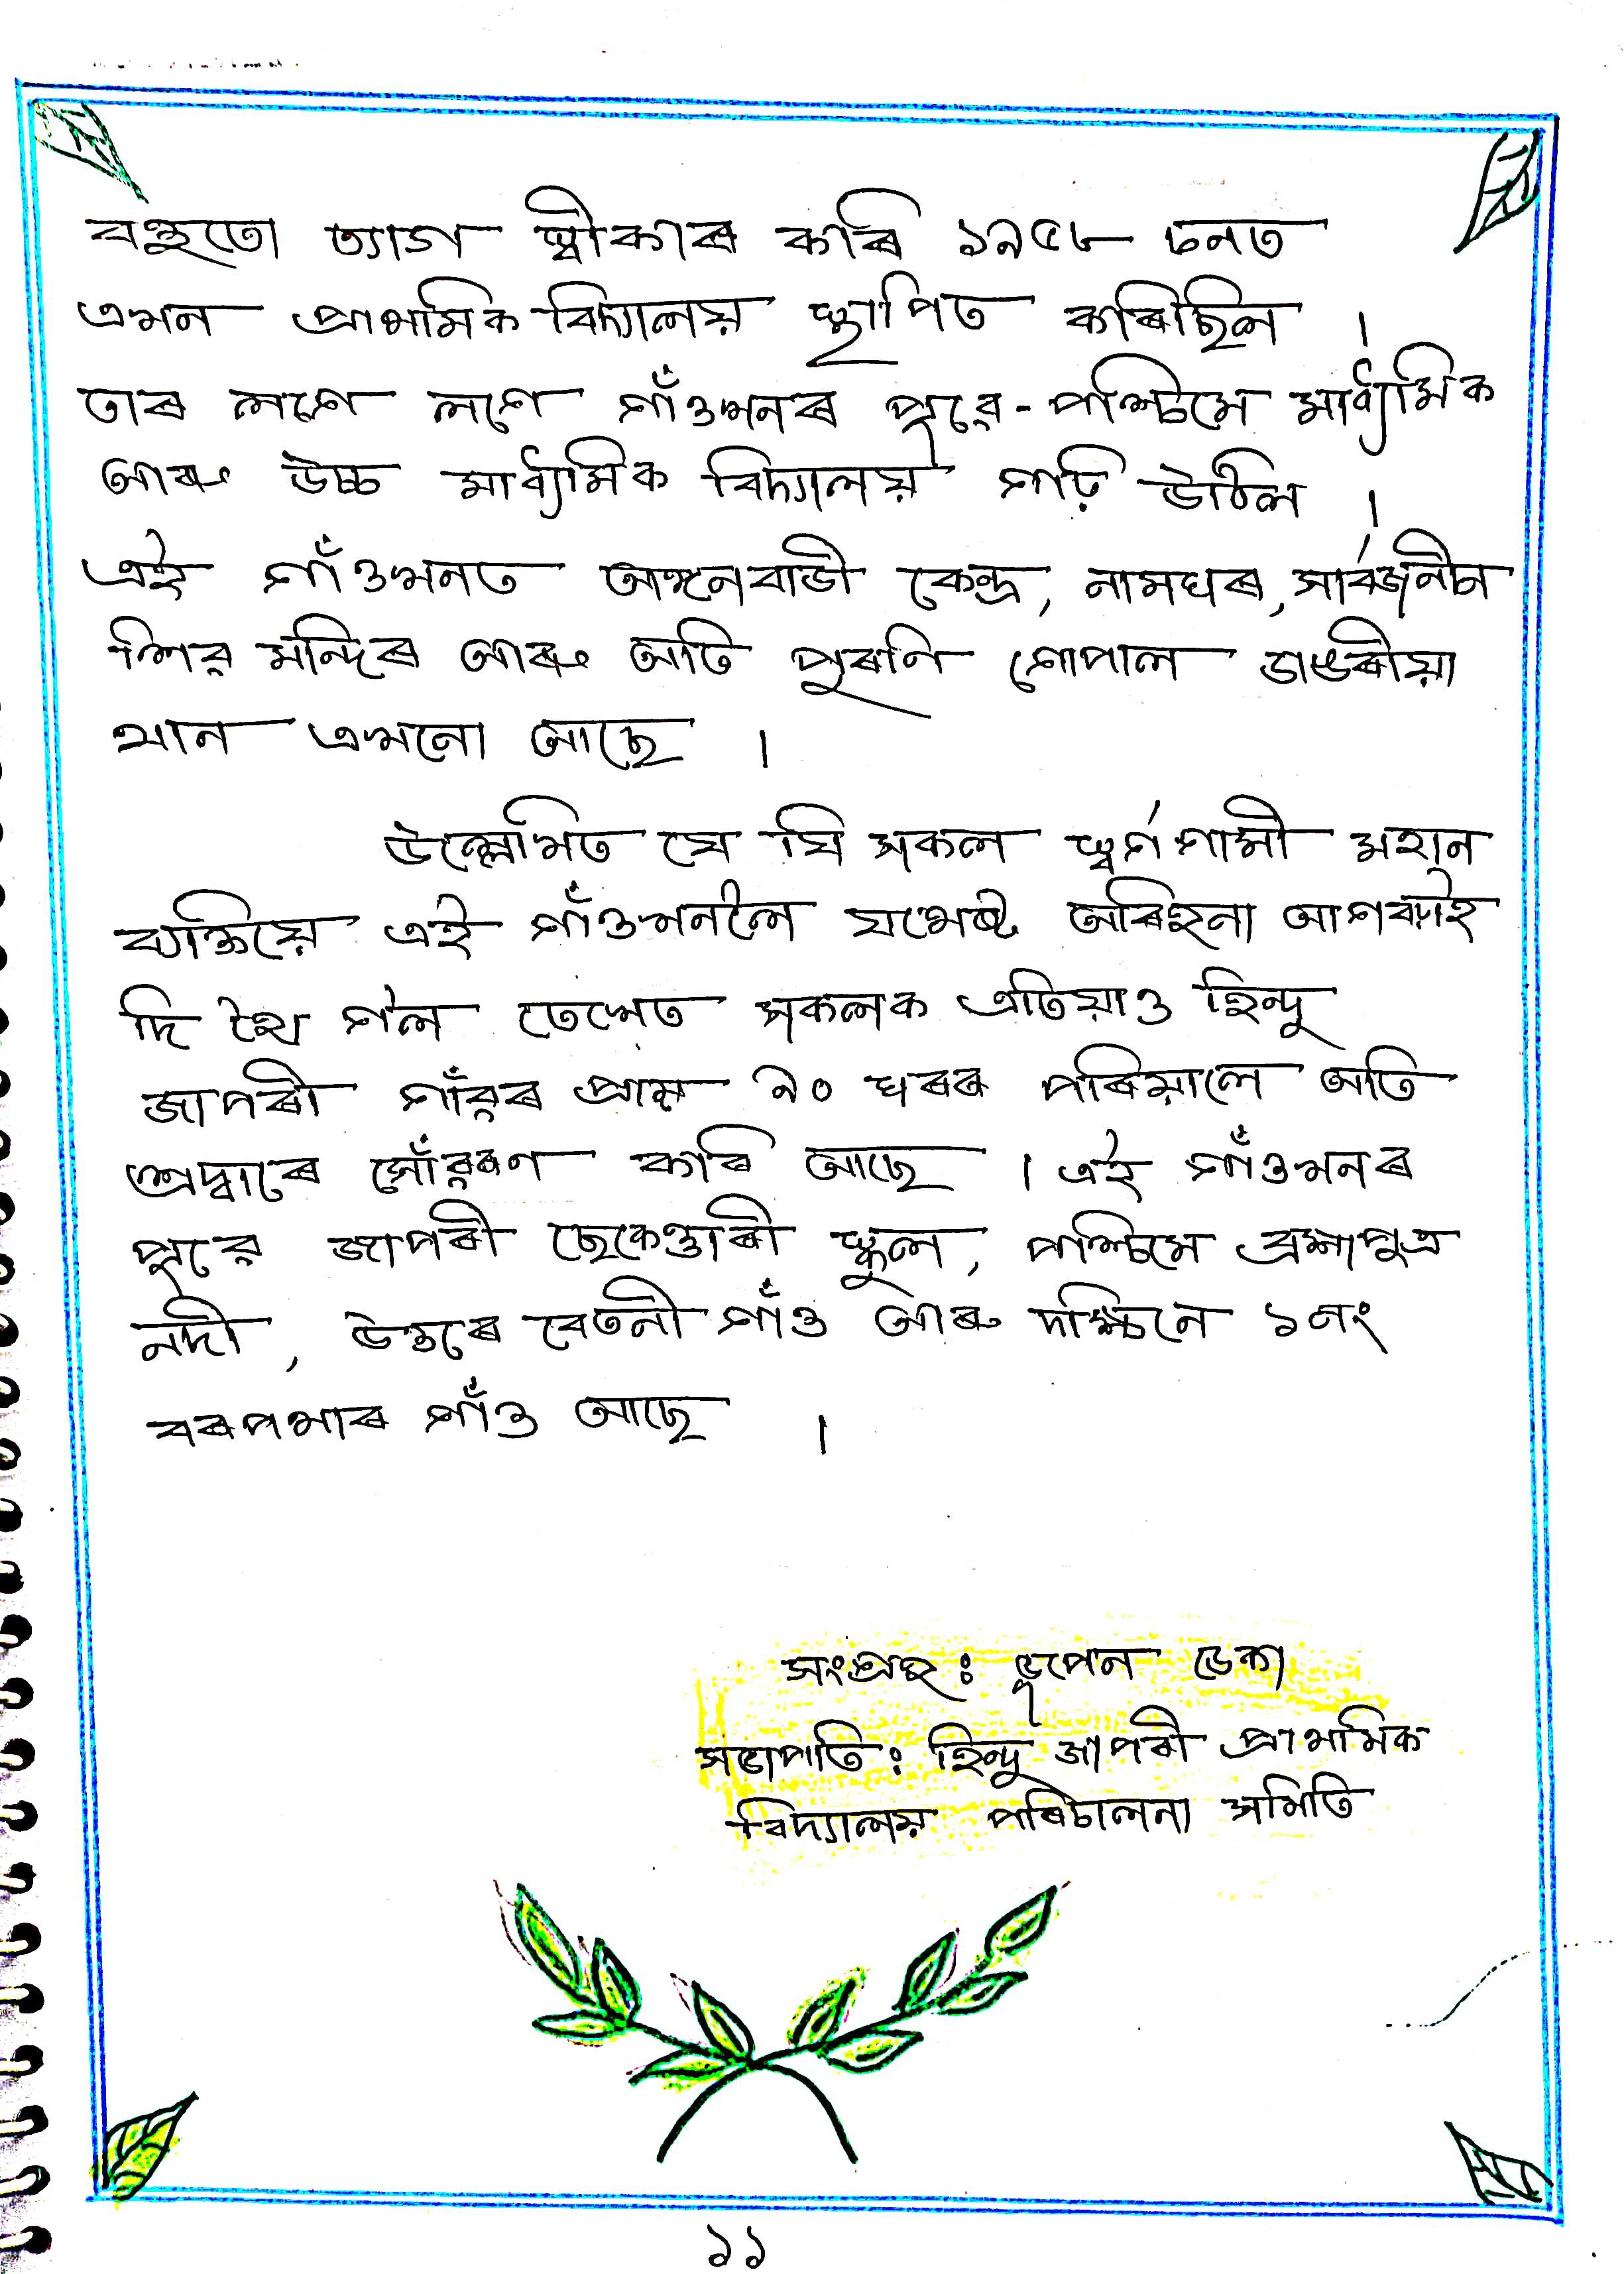 বহুতো ত্যাগ স্বীকাৰ কৰি ১৯৫৮ চনত
এখন প্ৰাথমিক বিদ্যালয় স্থাপিত কৰিছিল ।
তাৰ লগে লগে গাঁওখনৰ পূৱে-পশ্চিমে মাধ্যমিক
আৰু উচ্চ মাধ্যমিক বিদ্যালয় গঢ়ি উঠিল ।
এই গাঁওখনত আঙ্গনবাডী কেন্দ্ৰ, নামঘৰ, সাৰ্বজনীন
শিৱ মন্দিৰ আৰু অতি পুৰণি গোপাল ডাঙৰীয়া
থান এখনো আছে ।
উল্লেখিত যে যি সকল স্বৰ্গগামী মহান
ব্যক্তিয়ে এই গাঁওখনলৈ যথেষ্ট অৰিহনা আগবঢ়াই
দি থৈ গল তেখেত সকলক এতিয়াও হিন্দু
জাপৰী গাঁৱৰ প্ৰায় ৯০ ঘৰৰ পৰিয়ালে অতি
শ্ৰদ্ধাৰে সোঁৱৰণ কৰি আছে । এই গাঁওখনৰ
পূৱে জাপৰী ছেকেণ্ডাৰী স্কুল, পশ্চিমে ব্ৰহ্মপুত্ৰ
নদী, উত্তৰে বেতনী গাঁও আৰু দক্ষিনে ১নং
বৰপথাৰ গাঁও আছে ।
সংগ্ৰহ : ভূপেন ডেকা
সভাপতি : হিন্দু জাপৰী প্ৰাথমিক
বিদ্যালয় পৰিচালনা সমিতি
১১